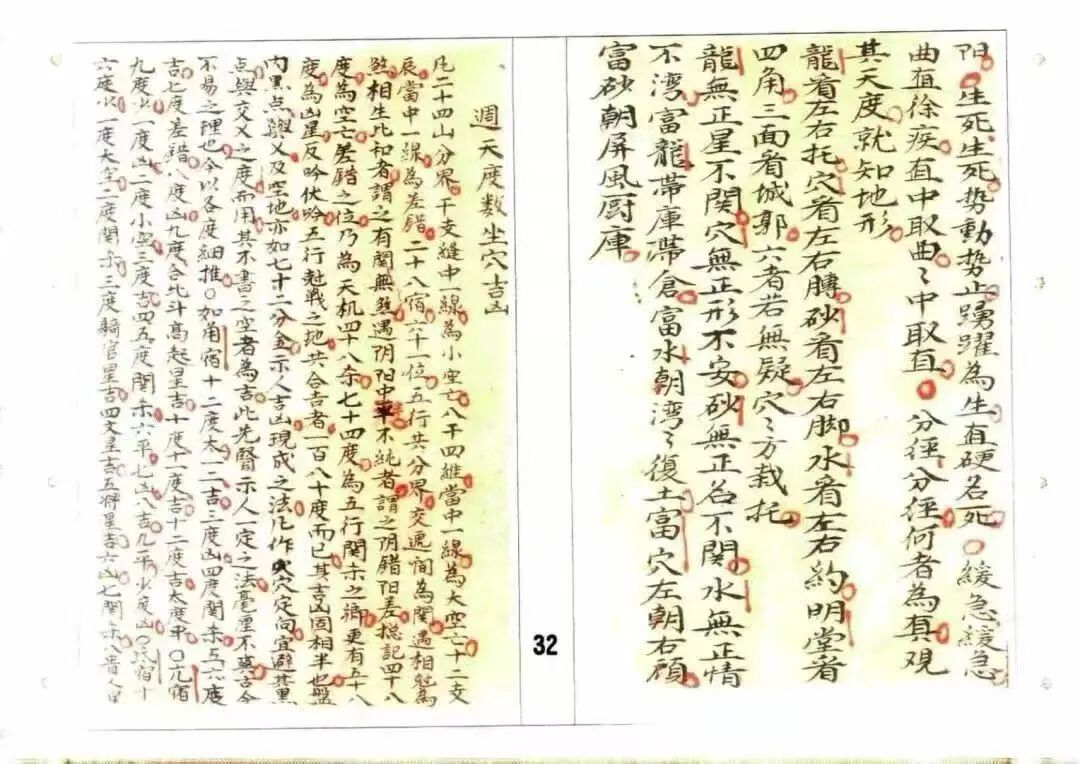 阳生死生死势動势止踴躍為生直硬名死○緩急緩急
曲直徐疾直中取曲〻中取直 分徑分徑何者為真观
其天度就知地形
龍看左右托穴看左右膊砂看左右脚水看左右約明堂看
四角三面看城郭六者若無疑穴〻方栽托
龍無正星不関穴無正形不安砂無正名不関水無正情
不湾富龍帶庫帶倉富水朝湾〻復土富穴左朝右顧
富砂朝屏風厨庫
週天度数坐穴吉凶
凡二十四山分界干支縫中一線為小空亡八干四維當中一線為大空亡十二支
辰當中一線為差錯二十八宿六十一位五行共分界交遇間為関遇相尅為
煞相生比和者謂之有関無煞遇阴阳中不純者謂之阴錯阳差総記四十八
度為空亡差錯之位乃為天机四十八杀七十四度為五行関杀之鄉更有五十八
度為凶星反吟伏吟五行尅戰之地共合吉者一百八十度而已其吉凶固相半也盤
内黑点與乂及空地亦如七十二分金示人吉凶現成之法凡作穴定向宜避其黑
点與交乂之度而用其不書之空者為吉此先賢示人一定之法毫厘不爽古今
不易之理也今以各度細推○如角宿十二度太一二吉三度凶四度関杀五六度
吉七度差錯八度凶九度合北斗高起星吉十度十一度吉十二度吉太度平○亢宿
九度少一度凶二度小空三度吉四五度関杀六平七凶八吉九平少度凶○氐宿十
六度少一度大空二度関杀三度騎官星吉四文星吉五将星吉六凶七関杀八